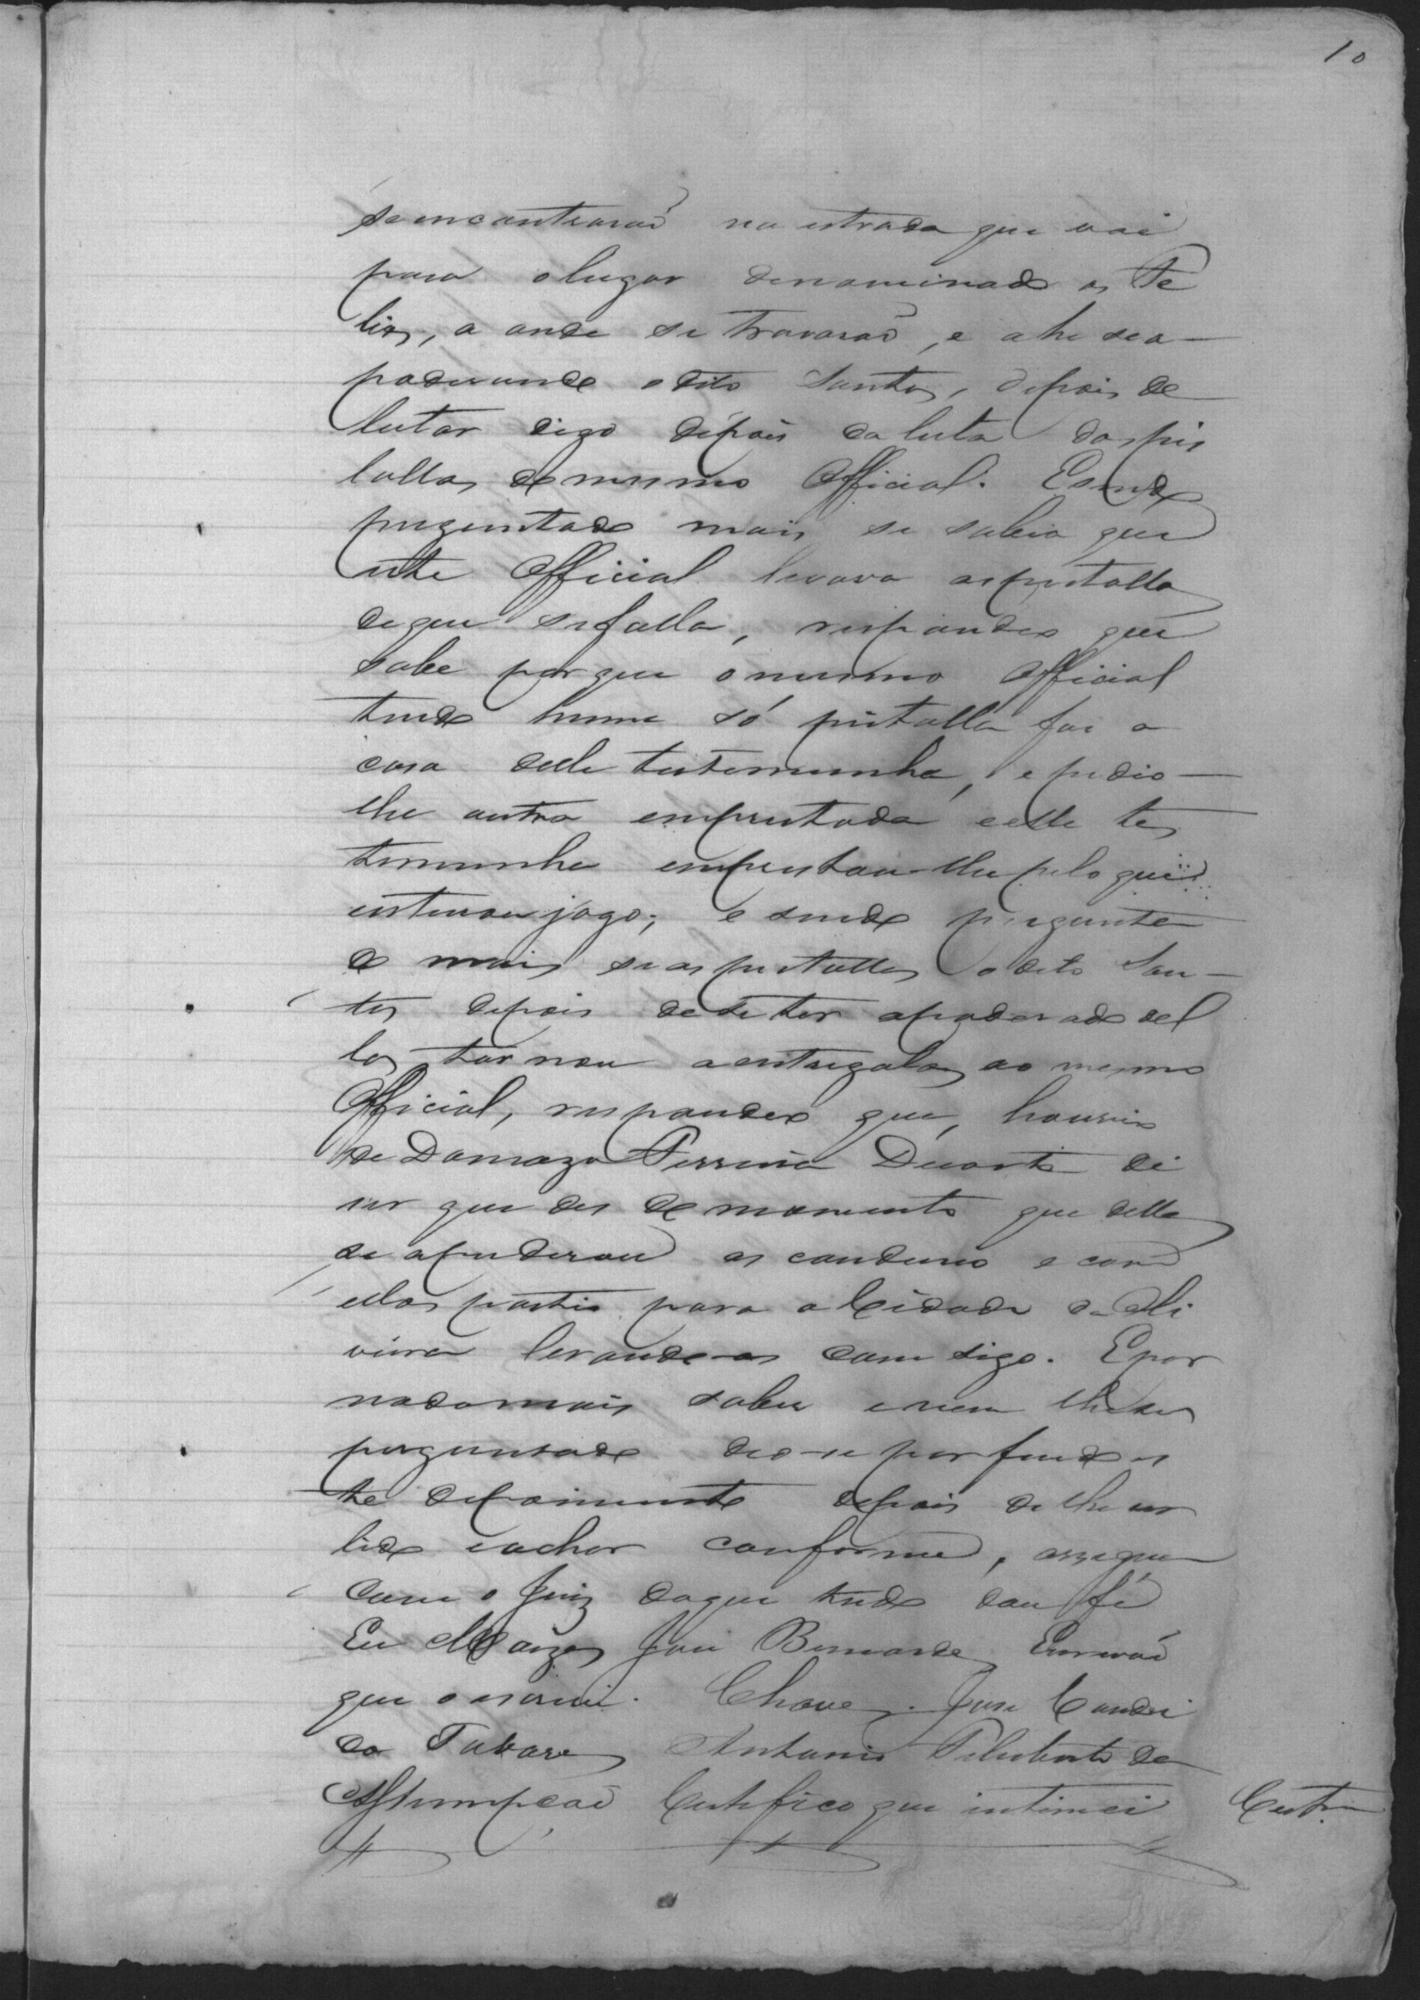 10
se encontrarão na estrada que vai
para o lugar denominado os Fe
lis, a onde se travarão, e ahi sea-
poderando o dito Santos, depois de
lutar digo depois da luta das pis
tollas do mesmo Official. E sendo
preguntado mais se sabia que
este Official levava as pistollas
de que se falla, respondeo que
sabe porque o mesmo Official
tendo huma só pistolla foi a
casa delle testemunha, e pedio-
lhe outra emprestada e elle tes
temunha emprestou-lhe pelo que
estevou jogo; e sendo pregunta
do mais se as pistollas o dito San-
tos depois de se ter apoderado del
las tornou a entregalas ao mesmo
Official, respondeo que, houvio
de Damazo Ferreira Duarte di
ser que des do momento que dellas
se apuderou as conduzio e com
ellas partio para a Cidade da Oli
veira levando-as com sigo. E por
nada mais saber e nem lhe ser
perguntado deo-se por findo es
te depoimento depois de lhe ser
lido e achar conforme, assigna
com o Juiz do que tudo dou fé
Eu Moizes José Bernardes Escrivão
que o escrevi. Chaves. José Candi
do Tavares Antonio Feliberto de
Assumpção Certifico que intimei
Certm.